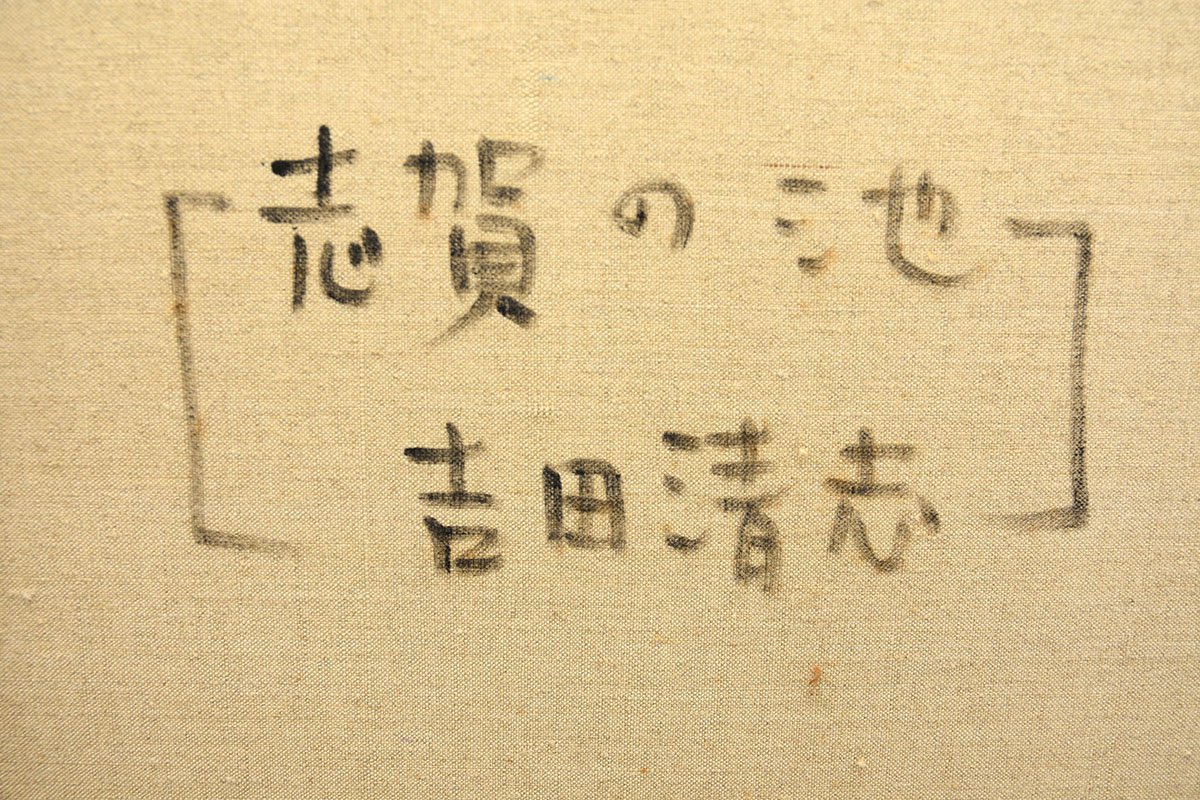 志賀の池
吉田清志